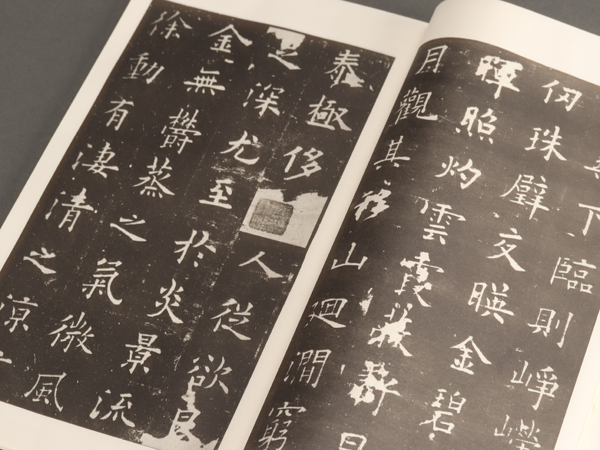 下臨則崢嶸
仞珠璧交暎金碧
暉照灼雲霞蔽虧日
月觀其移山迴澗窮
泰極侈人從欲良
之深尤至於炎景流
金無鬱蒸之氣微風
徐動有淒清之涼